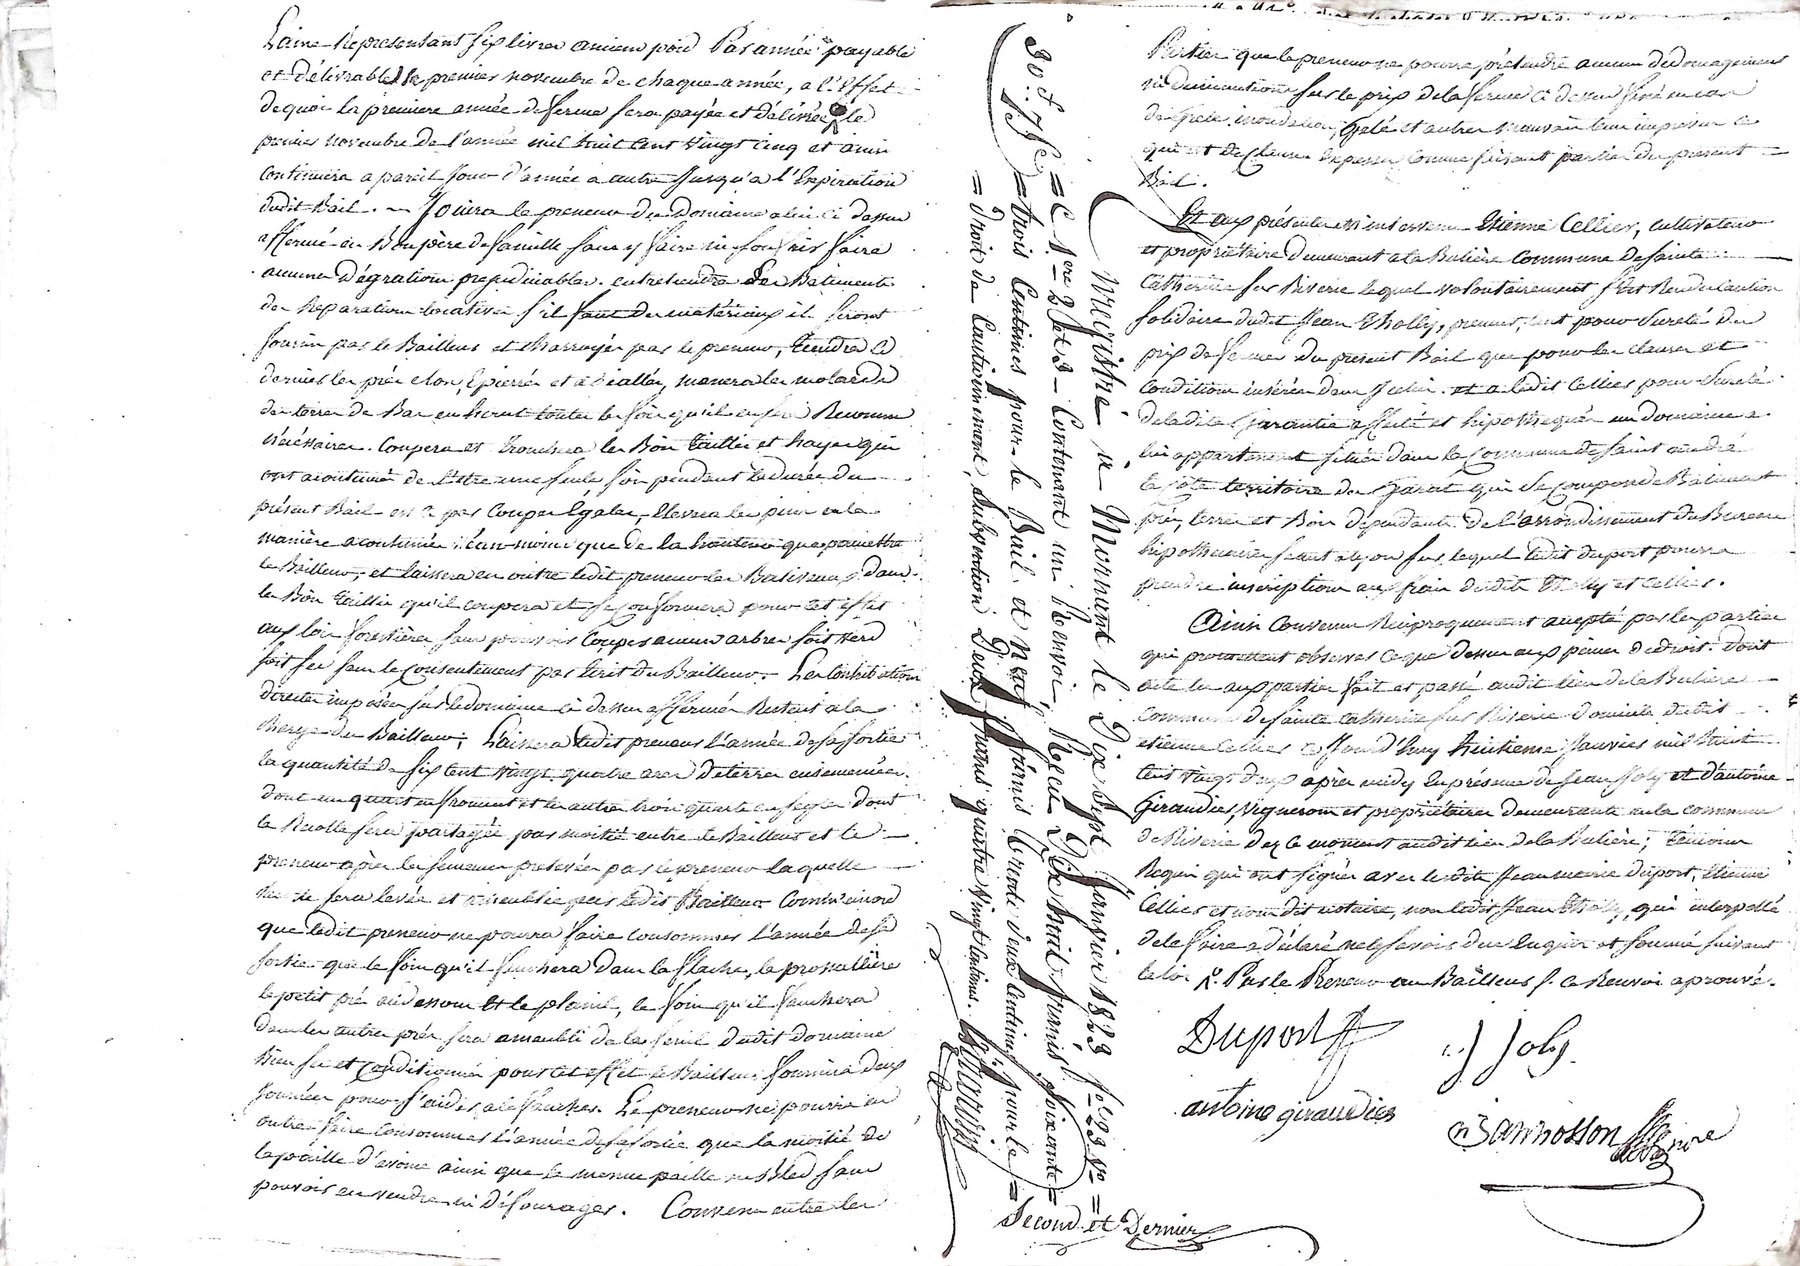 Laine Représentant six livres ancien poid Par année payable
et délivrable le premier novembre de chaque année, a l'Effet
de quoi la premiere année de ferme sera payée et délivrée le
premier novembre de l'année mil huit cent vingt cinq et ainsi
continuera a pareil jour d'année a autre jusqu'a l'Expiration
dudit Bail. Jouira le preneur du Domaine a lui ci dessus
affermé en Bon père de famille sans y faire ni souffrir faire
aucunes dégration prejudiciables. entretiendra les Batiments
des Réparations locatives s'il faut des matériaux il seront
fournis par le Bailleur et charroyés par le preneur, tiendra ce
dernier les prés clos, Epierrés et
de terres de Bas en haut toutes les fois qu'il en sera Reconnu
nécéssaires. Coupera et tronchera les Bois taillis et hayes qui
ont acoutumé de l'être une seule fois pendant la durée du
présent Bail et par Coupes Egales, Elevera les pins en la
manière acoutumée néanmoins que de la hauteur que permettra
le Bailleur, et laissera en outre ledit preneur les Baliveaux dans
les Bois taillis qu'il coupera et se conformera pour cet effet
aux lois forestières sans pouvoir Couper aucun arbres soit verd
soit sec sans le consentement par Ecrit du Bailleur. Les Contributions
directes imposées sur le domaine ci dessus affermé Restent a la
charge du Bailleur; Laissera ledit preneur l'année de sa sortie
la quantité de six cent vingt quatre ares de terres ensemencées
dont un quart en froment et les autres trois quarts en seigle dont
la Recolte sera partagée par moitié entre le Bailleur et le
preneur après les semences prelevées par le preneur laquelle
sera levée et par ledit Bailleur Convenu
que ledit preneur ne pourra faire consommer l'année de sa
sortie que le foin qu'il fauchera dans la flache, la prossallière
le petit pré au dessous et le planil, le foin qu'il fauchera
dans les autres prés sera ameubli da le fenil dudit domaine
Bien sec et conditionné pour cet effet le Bailleur fournira deux
journées pour s'aider a le faucher. Le preneur ne pourra en
outre faire consommer l'année de sa sortie que la moitié de
la paille ainsi que la menue paille sans
pouvoir en vendre ni défourager. Convenu entre les
90 f.
Enregistré a Mornant le Dix sept Janvier 1823 fo. 23 vo. =
= C. 1ere 2 et 3 = Contenant un Renvoi, Reçu Dix huit francs soixante =
= trois Centimes pour le Bail, et Neuf francs trente deux Centimes pour le =
= Droit de Cautionnement, Subvention Deux francs quatre vingt Centimes.
Second et Dernier
Parties que le preneur ne pourra prétendre aucun dédomagement
ni diminution sur le prix de la ferme ci dessus fixé en cas
de Grele, inondation, Gelé et autres mauvais tems imprévus ce
qui est de clause Expresse comme faisant partie du present
Bail.
Et aux présentes est intervenu Etienne Cellier, cultivateur
et propriétaire demeurant a la Bulière Commune de Sainte
Catherine sur Riverie lequel volontairement s'est Rendu caution
solidaire dudit Jean Tholly, preneur, tant pour Sureté du
prix de ferme du present Bail que pour les clauses et
Conditions insérées dans icelui. et a ledit Cellier pour Sureté
de ladite Garantie affecté et hipothequé un domaine a
lui appartenant situé dans la Commune de Saint andré
la Cote territoire du Garat qui se compose de Batiment
prés, terres et Bois dépendant de l'arrondissement du Bureau
hipothecaire séant a lyon sur lequel ledit duport pourra
prendre inscription aux frais desdits Tholly et Cellier.
Ainsi Convenu Reciproquement accepté par les parties
qui promettent observer ce que dessus aux peines de droit. Dont
acte lu aux parties fait et passé audit lieu de la Bulière
Commune de Sainte Catherine sur Riverie domicile dudit
etienne Cellier ce Jourd'huy huitieme Janvier mil huit
cent vingt deux après midy En présence de Jean Joly et d'antoine
Giraudier, Vignerons et propriétaires demeurants en la commune
de Riverie de ce moment audit lieu de la Bulière; témoins
Requis qui ont signés avec lesdits Jean marie duport, Etienne
Cellier et nous dit notaire, non ledit Jean Tholly, qui interpellé
de le faire a déclaré ne le savoir de ce Enquis et sommé suivant
la loi. Par le Preneur au Bailleur ce Renvoi aprouvé.
Duport
J Joly
antoine giraudier
Bannosson